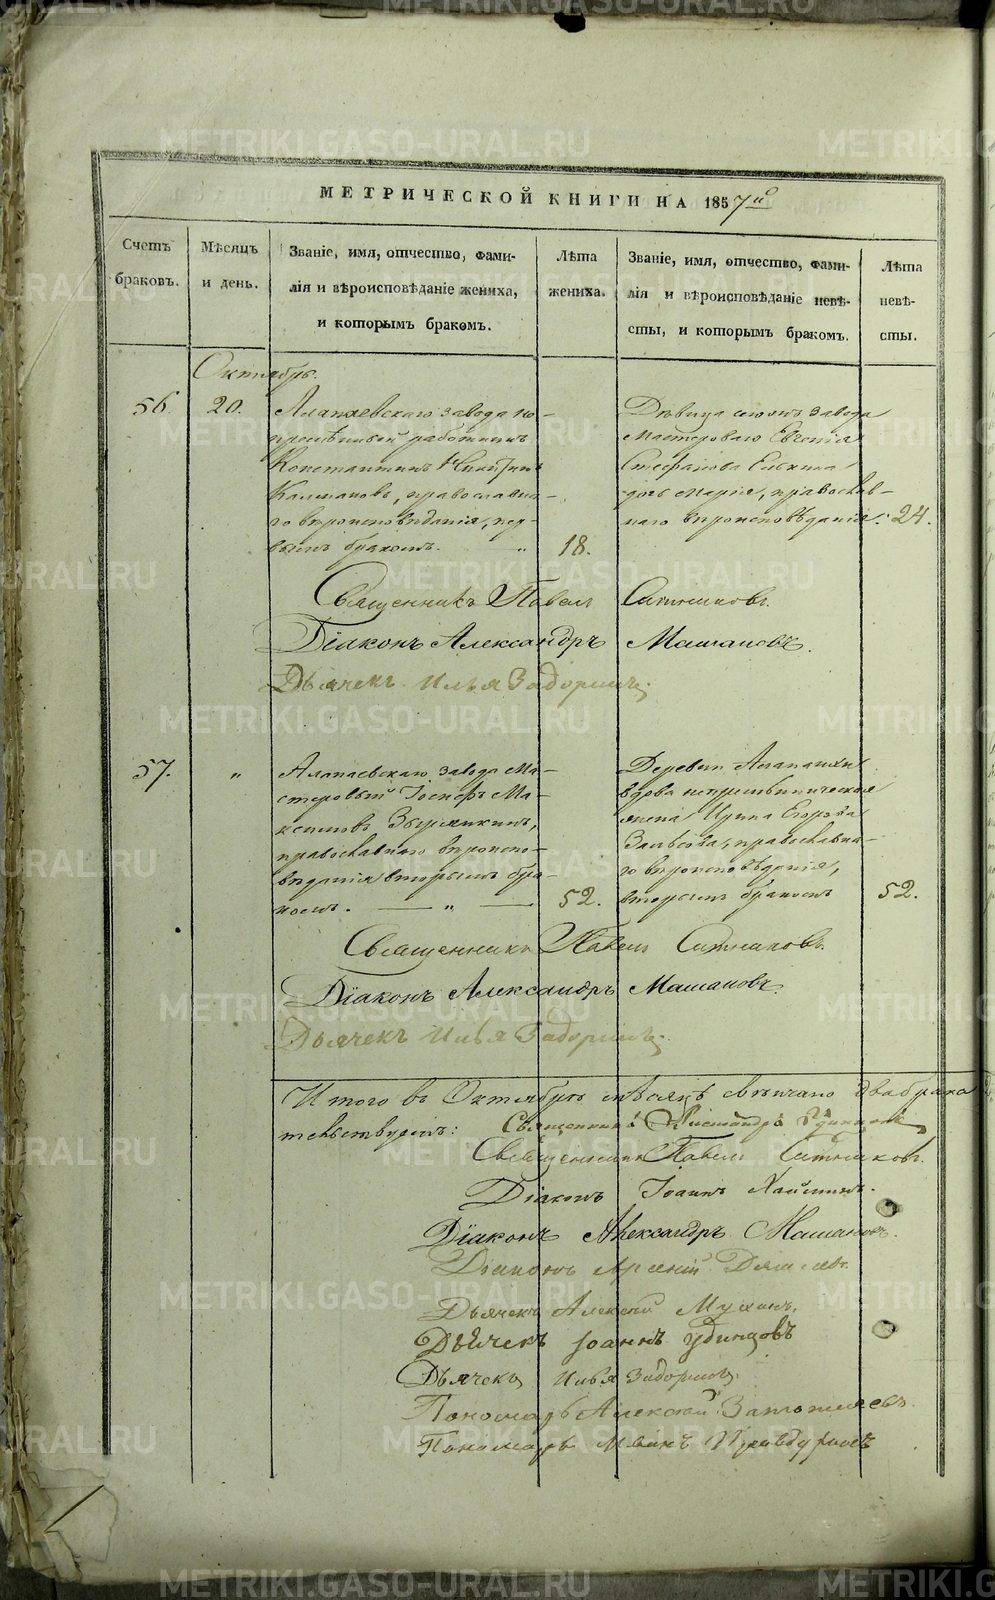 МЕТРИЧЕСКОЙ КНИГИ НА 1857й
Счетъ браковъ.
Мѣсяцъ и день.
Званіе, имя, отчество, фами-
лія и вѣроисповѣданіе жениха,
и которымъ бракомъ.
Лѣта жениха.
Званіе, имя, отчество, фами-
лія и вѣроисповѣданіе невѣ-
сты, и которымъ бракомъ.
Лѣта невѣ-
сты.
Октябрь.
56. 20.
Алапаевскаго завода
работникъ
Константинъ Никитинъ
Калмаковъ, православна-
го вѣроисповѣданія, пер-
вымъ бракомъ. 18.
Дѣвица завода
Мастероваго Евгенія
Стефанова Елькина
дочь Марія, православ-
наго вѣроисповѣданія. 24.
Священникъ Павелъ Ситниковъ.
Діаконъ Александръ Машановъ.
Дьячекъ Илья Задоринъ.
57. "
Алапаевскаго завода Ма-
стеровый Іосифъ Ма-
ксимовъ Зырянкинъ,
православнаго вѣроиспо-
вѣданія вторымъ бра-
комъ. — " — 52.
Деревни Алапаихи
вдова непремѣннически
Ирина Егорова
православна-
го вѣроисповѣданія,
вторымъ бракомъ 52.
Священникъ Павелъ Ситниковъ.
Діаконъ Александръ Машановъ.
Дьячекъ Илья Задоринъ.
Итого въ Октябрѣ мѣсяцѣ свѣнчано два брака
Священникъ
Священникъ Павелъ Ситниковъ.
Діаконъ Іоаннъ
Діаконъ Александръ Машановъ.
Діаконъ Арсеній
Дьячекъ Алексій Мухинъ.
Дьячекъ Іоаннъ Удинцовъ
Дьячекъ Илья Задоринъ.
Пономарь Алексій
Пономарь
METRIKI.GASO-URAL.RU